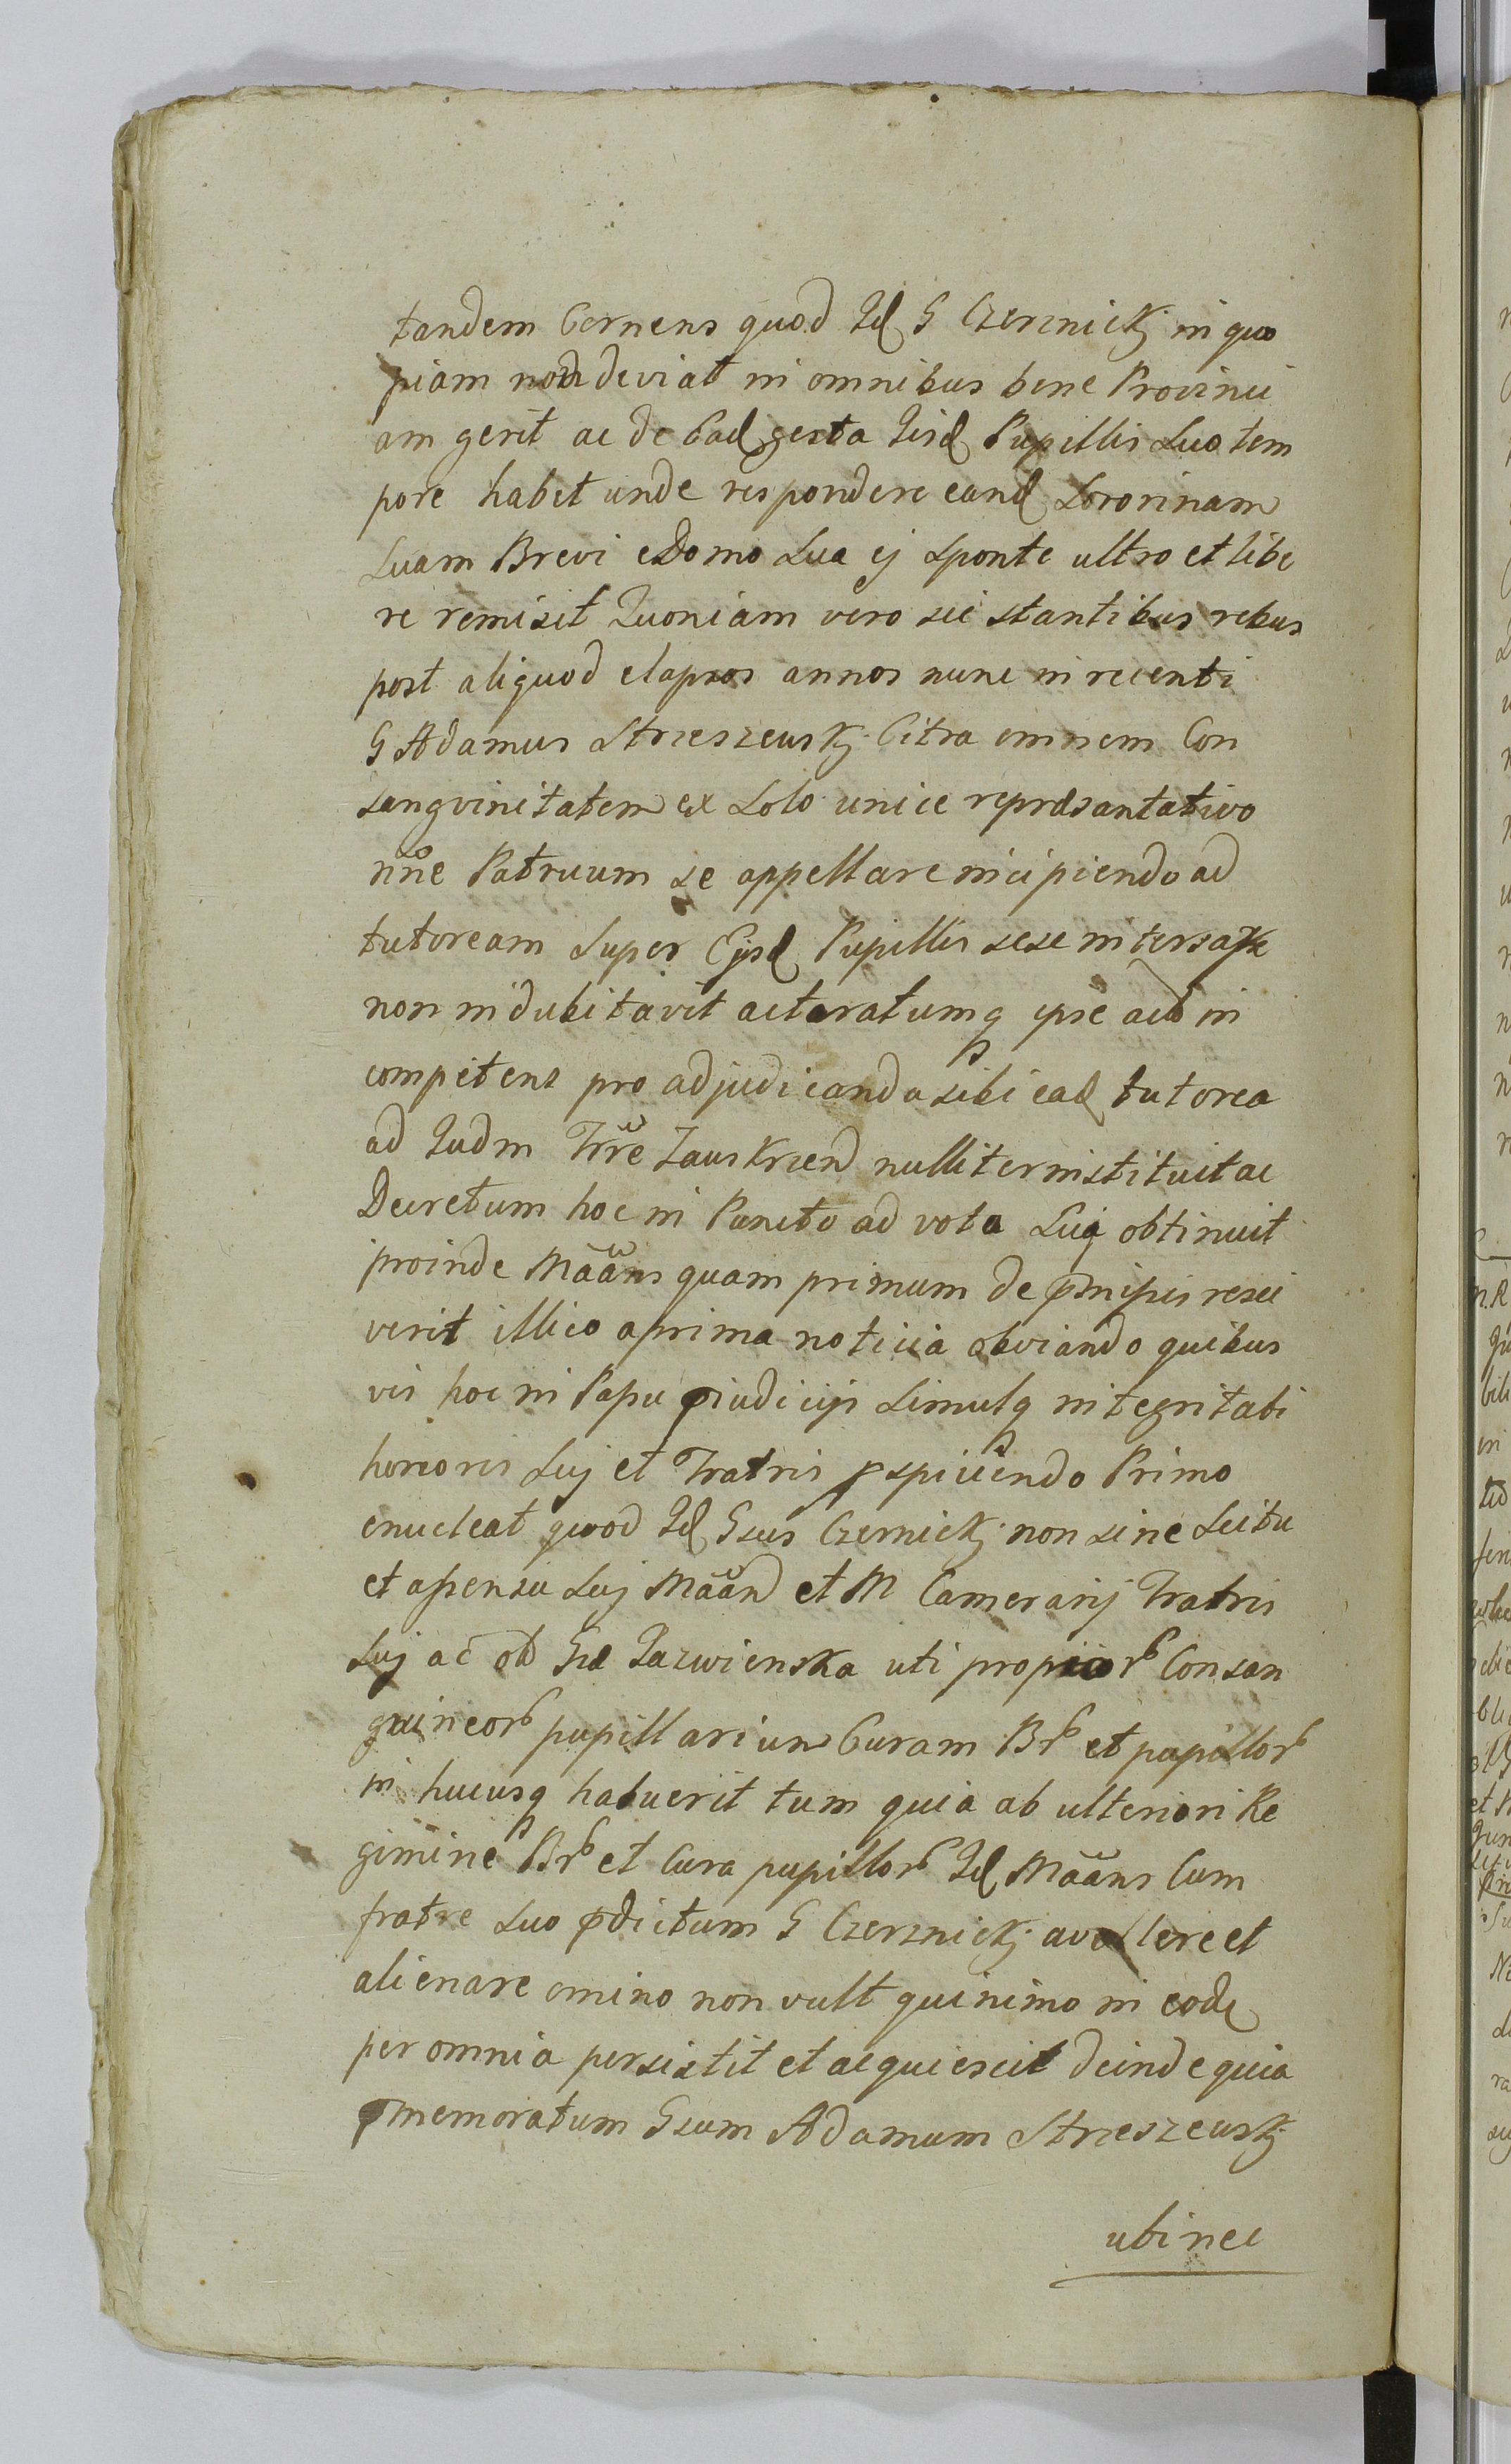 tandem Cernens quod Id G Czerznickj in quo
piam non deviat in omnibus bene Provinci
am gerit ac de Ead gesta Iisd Pupillis Suo tem
pore habet unde respondere eand Sororinam
Suam Brevi e Domo Sua ej sponte ultro et libe
re remisit Quoniam vero sic stantibus rebus
post aliquod elapsos annos nunc in recenti
G Adamus Strzeszewskj Citra omnem Con
sangvinitatem ex Solo unice repræsantativo
nñe Patruum se appellare incipiendo ad
tutoream Super Ejsd Pupillis sese
non indubitavit actoratumq ipse in
competens pro adjudicanda sibi ead tutorea
ad Iudm Trrẽ Zauskrzen nulliter instituit ac
Decretum hoc in Puncto ad vota Suj obtinuit
proinde Mããns quam primum de pmissis resci
verit illico a prima noticia obviando quibus
vis hoc in Passu pjudicijs Simulq integritati
honoris Suj et Fratris pspiciendo Primo
enucleat quod Id Gsus Czernickj non sine Scitu
et assensu Suj Mããn et M Camerarij Fratris
Suj ac olb Gd Lazwienska uti propior Consan
guineor pupillarium Curam Br et pupillor
in hucusq habuerit tum quia ab ulteriori Re
gimine Br et Cura pupillor Id Mããns Cum
fratre Suo pdictum G Czerznickj avellere et
alienare omino non vult quinimo in eode
per omnia persistit et acquiescit deinde quia
pmemoratum Gsum Adamum Strzeszewskj
ubi nec